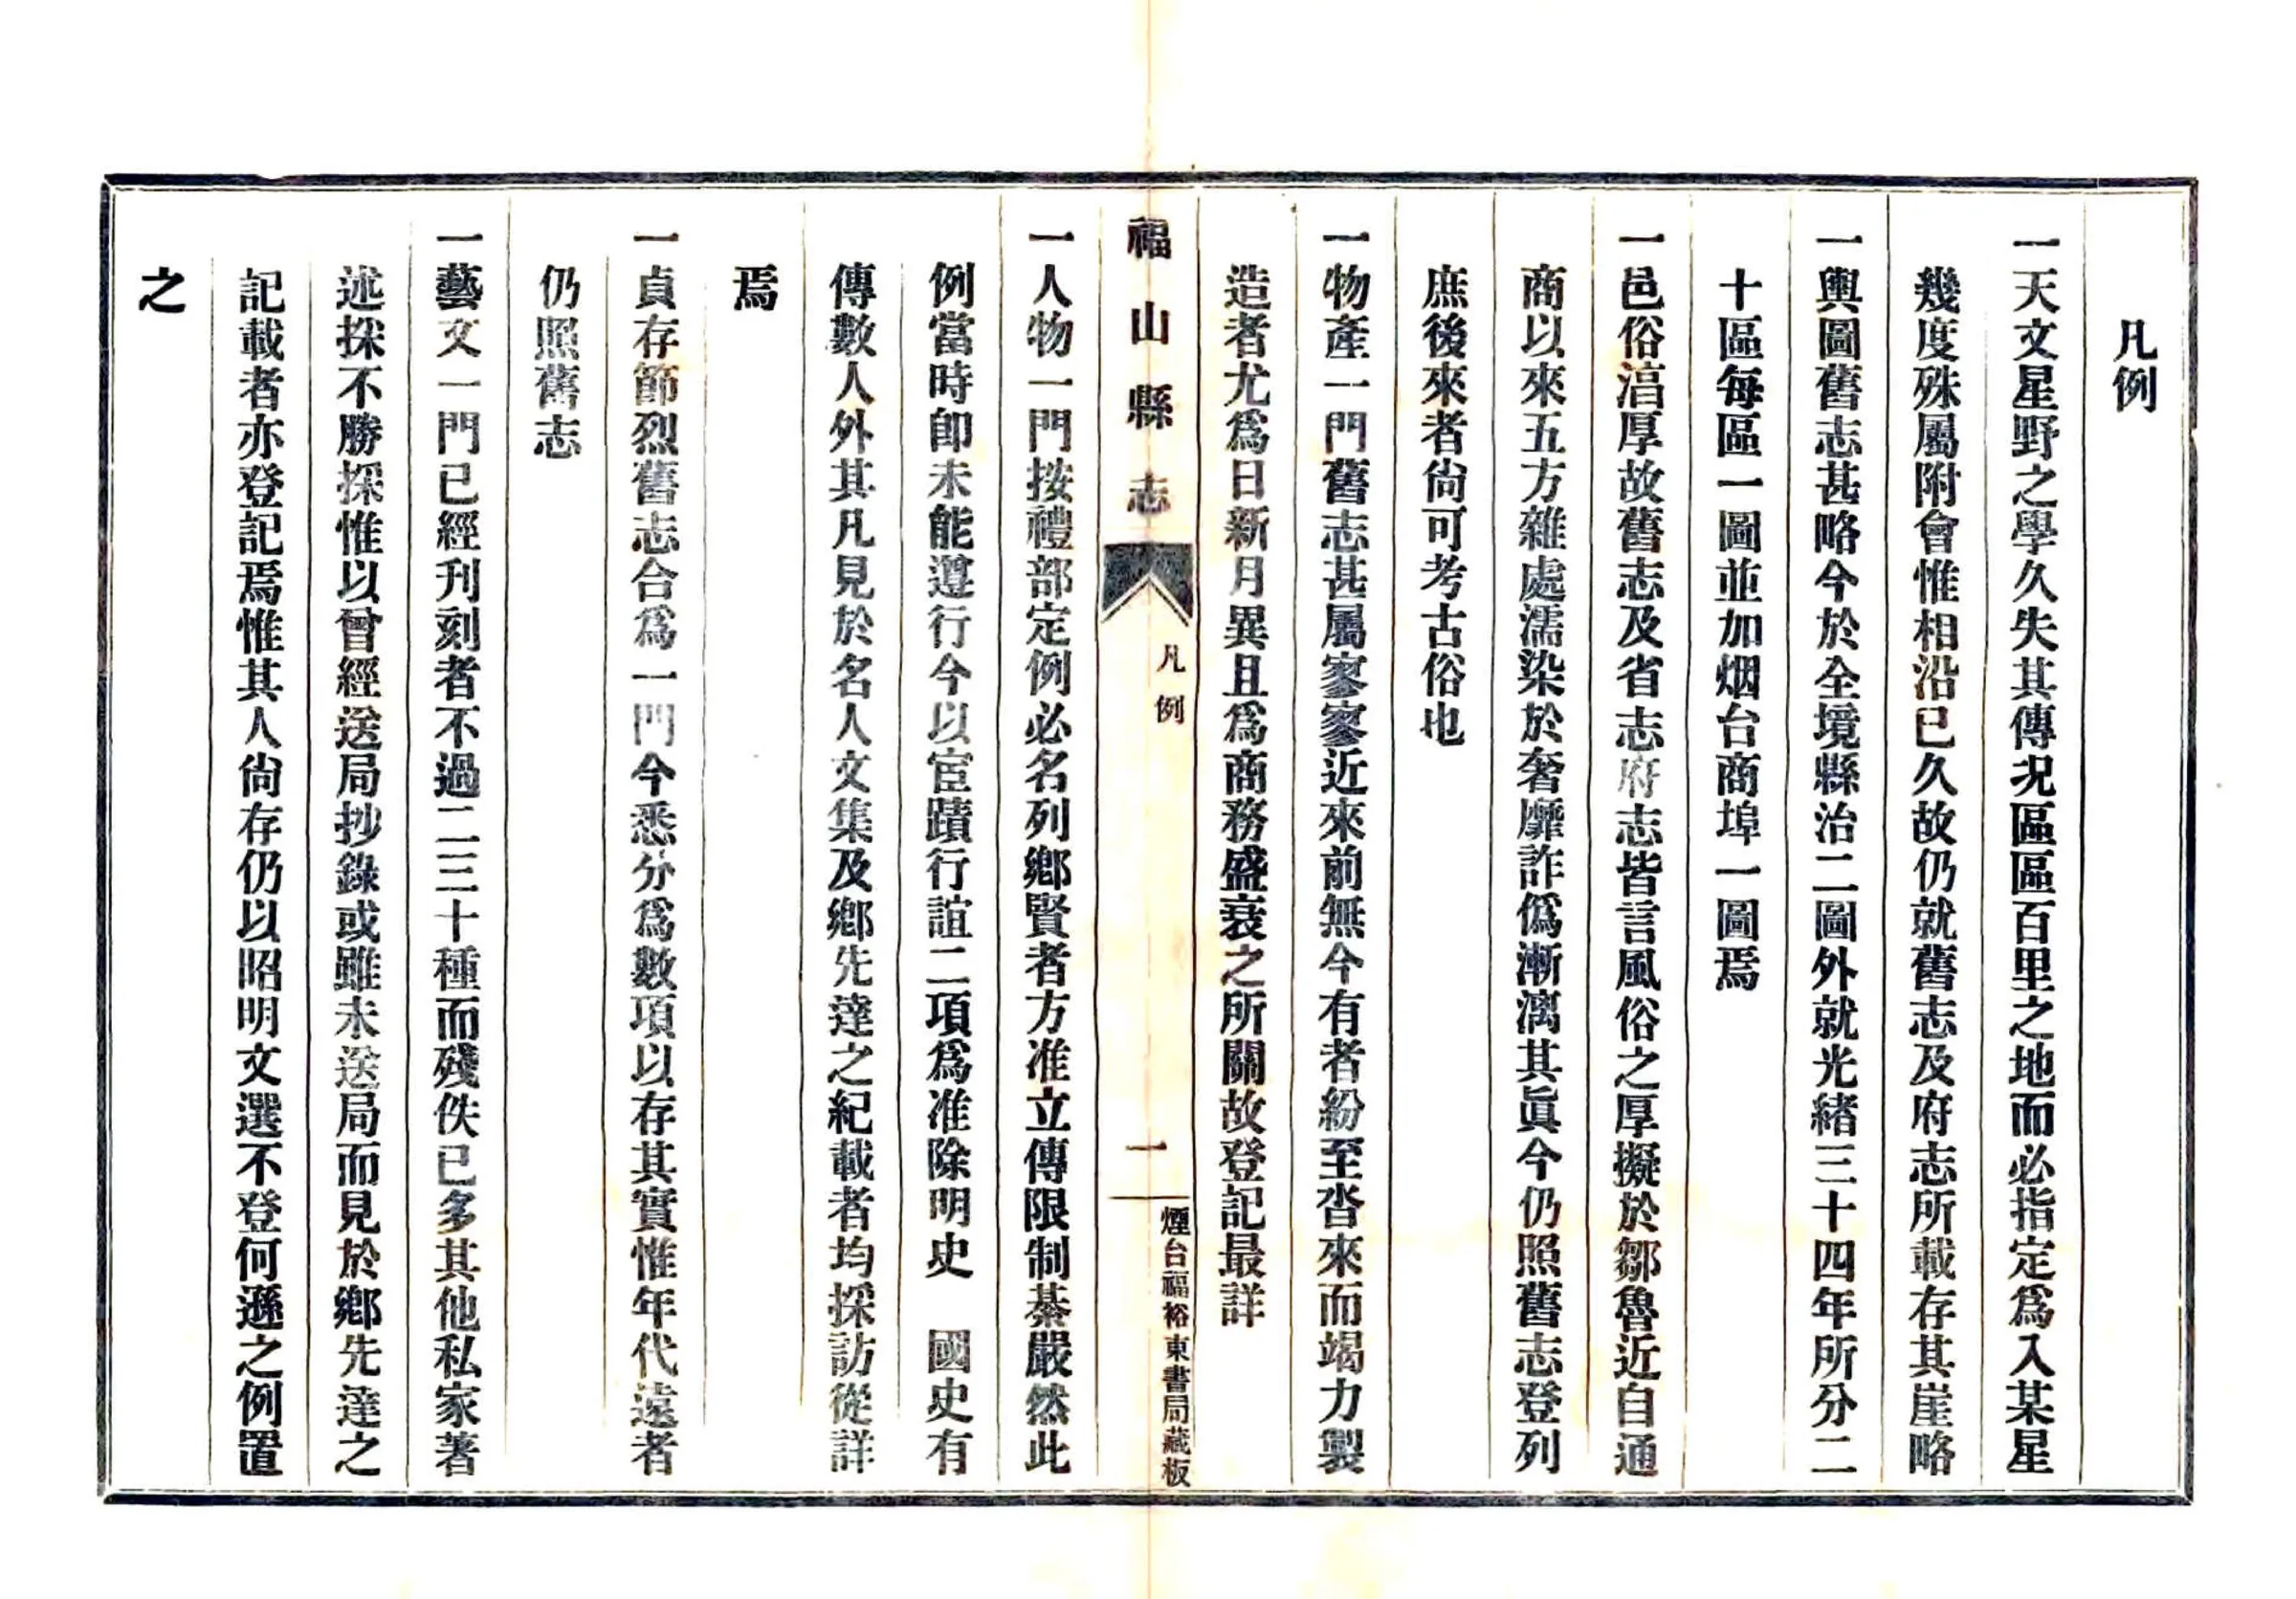 凡例
一天文星野之學久失其傳况區區百里之地而必指定為入某星
幾度殊屬附會惟相沿已久故仍就舊志及府志所載存其崖略
一輿圖舊志甚略今於全境縣治二圖外就光緒三十四年所分二
十區每區一圖並加烟台商埠一圖焉
一邑俗湻厚故舊志及省志府志皆言風俗之厚擬於鄒魯近自通
商以來五方雜處濡染於奢靡詐僞漸漓其眞今仍照舊志登列
庶後來者尙可考古俗也
一物產一門舊志甚屬寥寥近來前無今有者紛至沓來而竭力製
造者尤爲日新月異且爲商務盛衰之所關故登記最詳
福山縣志
凡例
一
煙台福裕東書局藏板
一人物一門按禮部定例必名列鄕賢者方准立傳限制綦嚴然此
例當時卽未能遵行今以宦蹟行誼二項爲准除明史　國史有
傳數人外其凡見於名人文集及鄕先達之紀載者均採訪從詳
焉
一貞存節烈舊志合爲一門今悉分爲數項以存其實惟年代遠者
仍照舊志
一藝文一門已經刋刻者不過二三十種而殘佚已多其他私家著
述採不勝採惟以曾經送局抄錄或雖未送局而見於鄕先達之
記載者亦登記焉惟其人尙存仍以昭明文選不登何遜之例置
之